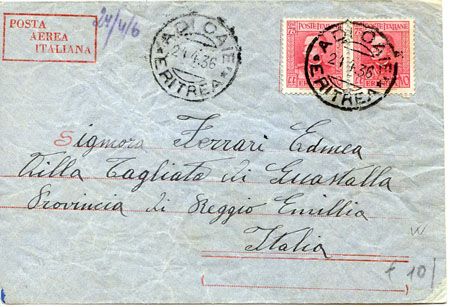 POSTA
AEREA
ITALIANA
24/4/6
ADI CAIE
21.4.36
* ERITREA *
POSTE ITALIANE
ADI CAIE
21.4.36
* ERITREA *
Signora Ferrari Edmea
Villa Tagliata di Guastalla
Provincia di Reggio Emillia
Italia
£ 10/